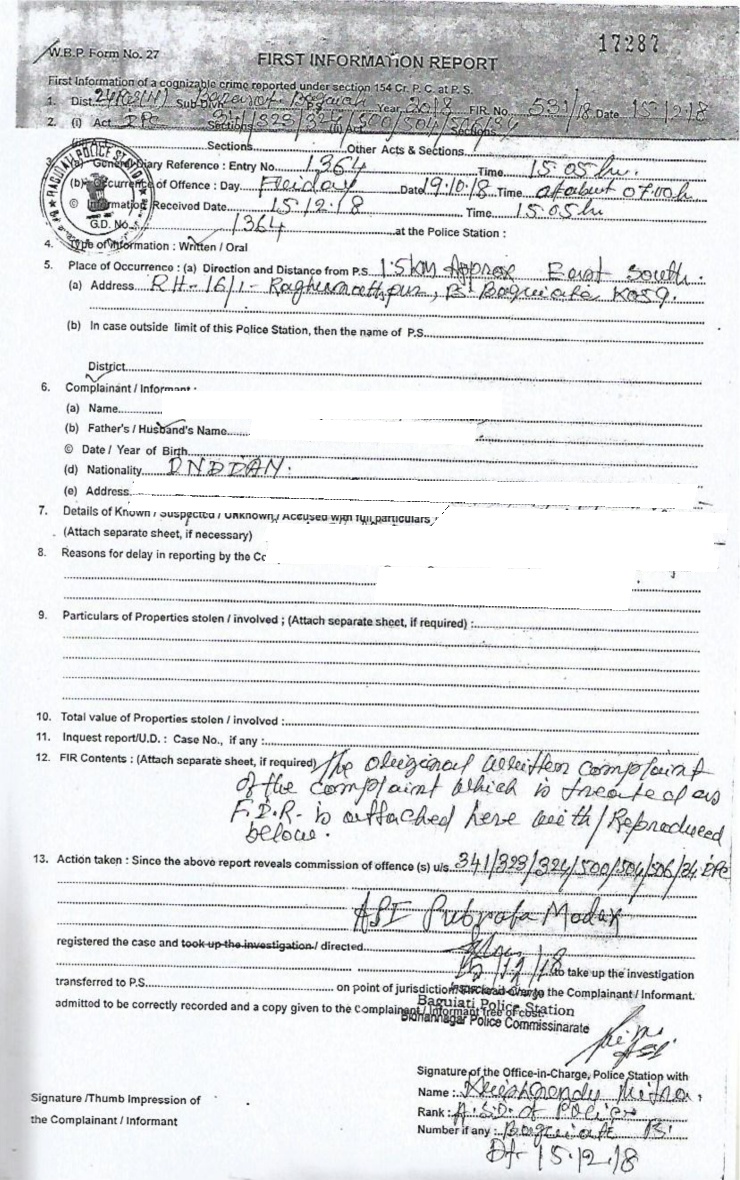 17287
W.B.P. Form No. 27
FIRST INFORMATION REPORT
First Information of a cognizable crime reported under section 154 Cr. P. C. at P. S.
1. Dist. 24 PGS(N) Sub Divn. Year 2018 FIR. No. 531/18 Date 15.12.18
2. (i) Act IPC Sections 341/323/324/500/504/506/34
Sections Other Acts & Sections
3. (a) General Diary Reference : Entry No. 1364 Time 15.05 hr.
(b) Occurrence of Offence : Day Friday Date 19.10.18 Time at about 07.00 h
© Information Received Date 15.12.18 Time 15.05 hr
BAGUIATI POLICE STATION
G.D. No. 1364 at the Police Station :
4. Type of Information : Written / Oral
5. Place of Occurrence : (a) Direction and Distance from P.S. 1.5 km Approx East South.
(a) Address RH-16/1- Raghunathpur, PS Baguiati Kol 59.
(b) In case outside limit of this Police Station, then the name of P.S.
District
6. Complainant / Informant :
(a) Name
(b) Father's / Husband's Name
© Date / Year of Birth
(d) Nationality INDIAN.
(e) Address
7. Details of Known / Suspected / Unknown / Accused with full particulars
(Attach separate sheet, if necessary)
8. Reasons for delay in reporting by the
9. Particulars of Properties stolen / involved ; (Attach separate sheet, if required) :
10. Total value of Properties stolen / involved :
11. Inquest report/U.D. : Case No., if any :
12. FIR Contents : (Attach separate sheet, if required) The original written complaint
of the complaint which is treated as
F.I.R. is attached here with/Reproduced
below.
13. Action taken : Since the above report reveals commission of offence (s) u/s. 341/323/324/500/504/506/34 IPC
ASI Subrata Modak
registered the case and took up the investigation / directed
15/12/18 to take up the investigation
transferred to P.S. on point of jurisdiction the Complainant / Informant.
Baguiati Police Station
admitted to be correctly recorded and a copy given to the Complainant / Informant free of cost.
Bidhannagar Police Commissinarate
Signature of the Office-in-Charge, Police Station with
Name : Mitra
Signature /Thumb Impression of
Rank : A.S.I. of Police
the Complainant / Informant
Number if any : Baguiati PS
Dt- 15.12.18